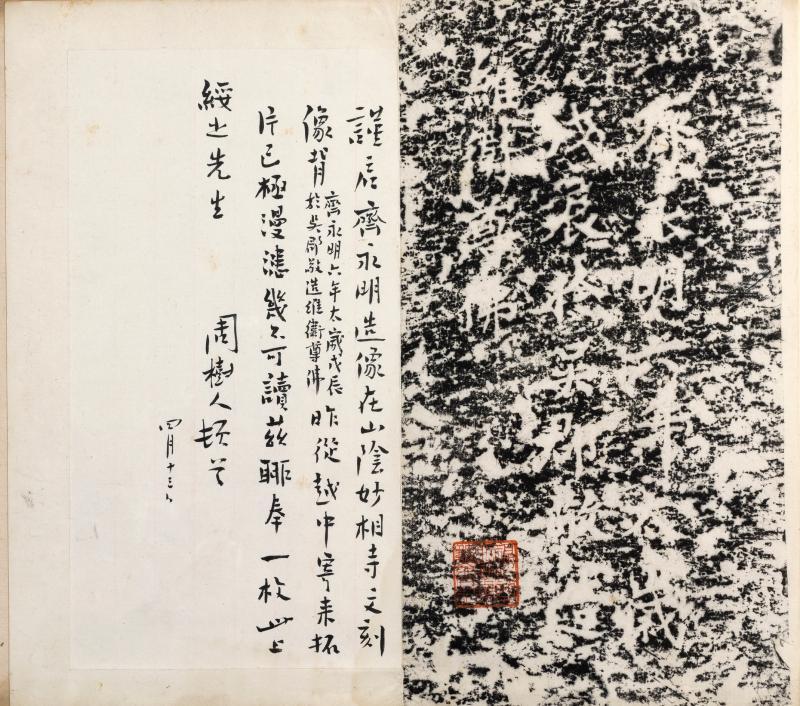 齊永明六年太歲
戊辰於吳郡敬造
維衛尊佛
謹启齊永明造像在山陰妙相寺文刻
像背
齊永明六年太歲戊辰
於吳郡敬造維衛尊佛
昨從越中寄来拓
片已極漫漶幾不可讀茲聊奉一枚此上
綏之先生
周樹人頓首
四月十三日